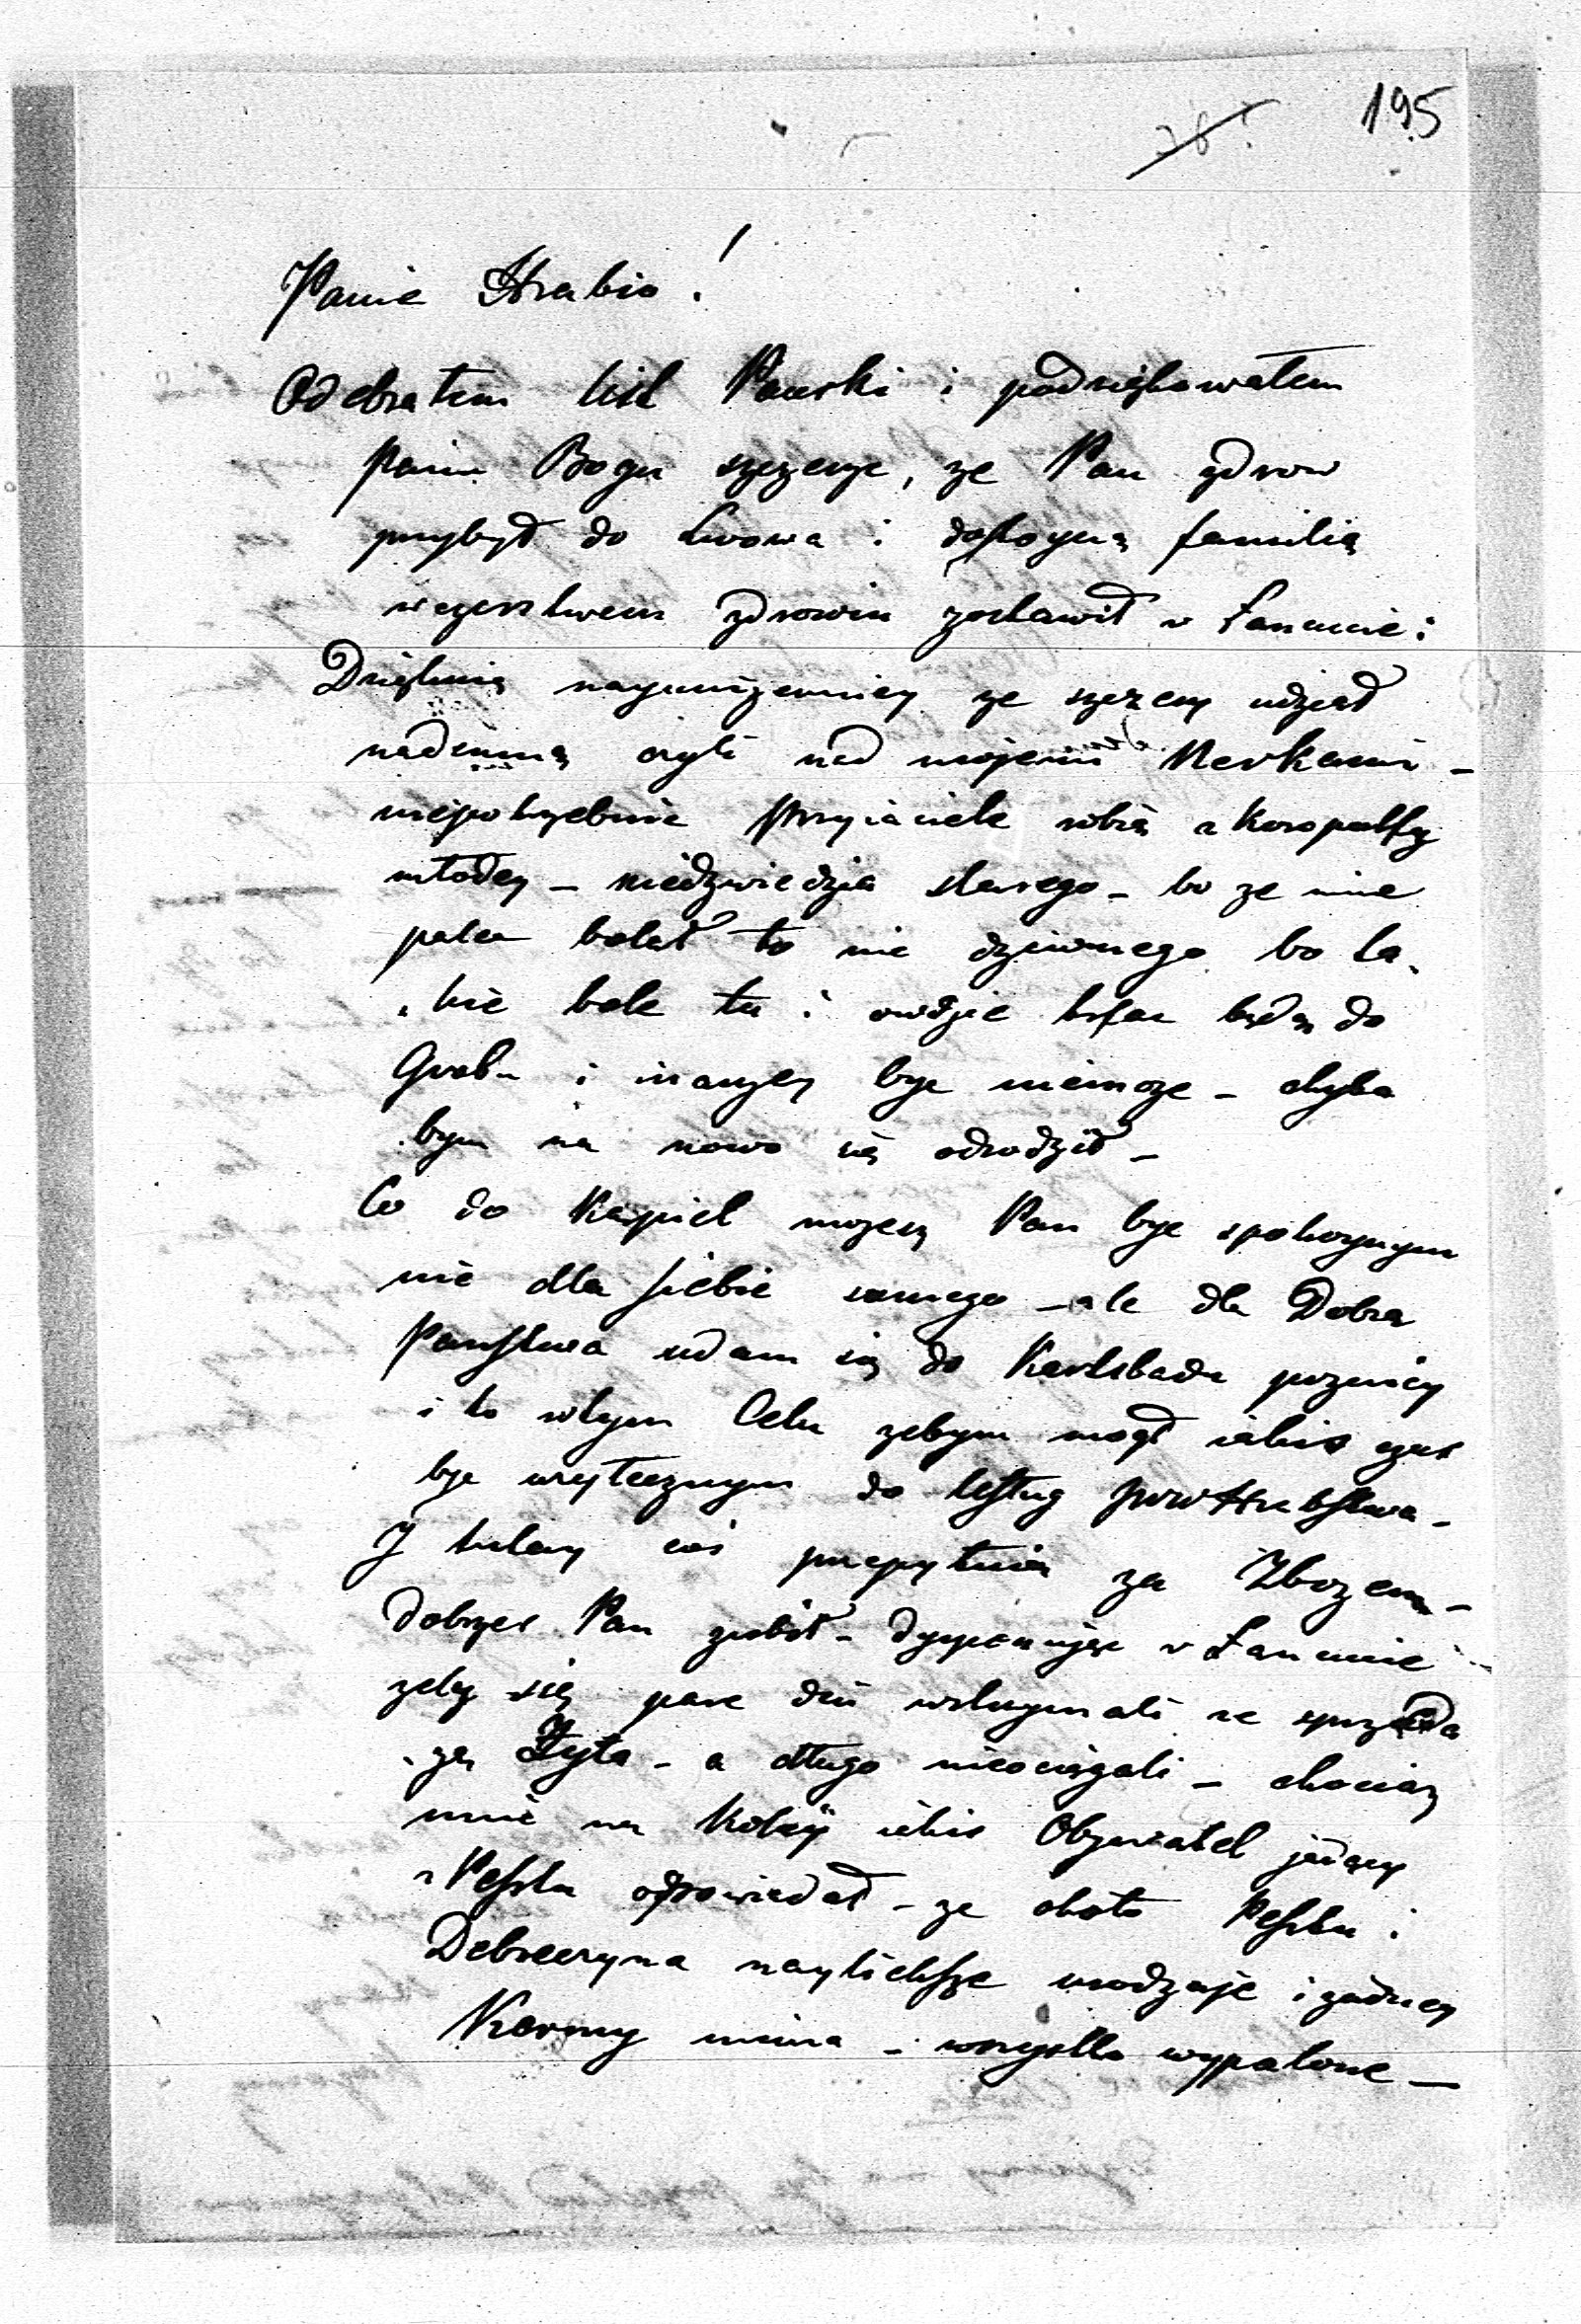 195
Panie Hrabio!
Odebrałem list Pański i podziękowałem
panu Bogu szczerze, ze Pan zdrow
przybył do Lwowa i dostoyną familią
wczerstwem zdrowiu zostawił w Łancucie:
Dziękuię nayunizenniey ze szczery udział
nademną czyli nad mojemi Nerkami –
niepotrzebnie Przyiaciele robią z Koropatfy
młodey – niedzwiedzia starego – bo ze mie
palec bolał to nic dziwnego bo ta-
kie bole tu i owdzie będą do
Grobu i inaczey byc niemoze – chyba
bym na nowo się odrodził –
Co do Kąpiel mozesz Pan byc spokoynym
nie dla siebie samego – ale dla Dobra
Panstwa udam się do Karlsbadu pozniey
i to wtym Celu zebym mogł iakis czas
byc uzytecznym do Usług
I tutay cos przepytuią za Zbozem –
dobrzes Pan zrobił – dysponując w Łancucie
zeby się pare dni wstrzymali ze sprzeda
zą Zyta – a długo nieociągali – chociaz
mnie na Koleji iakis Obywatel jadący
z Pesztu opowiadał – ze około Pesztu i
Debreczyna naylichsze urodzaje i zadney
Karmy niema – wszystko wypalone –